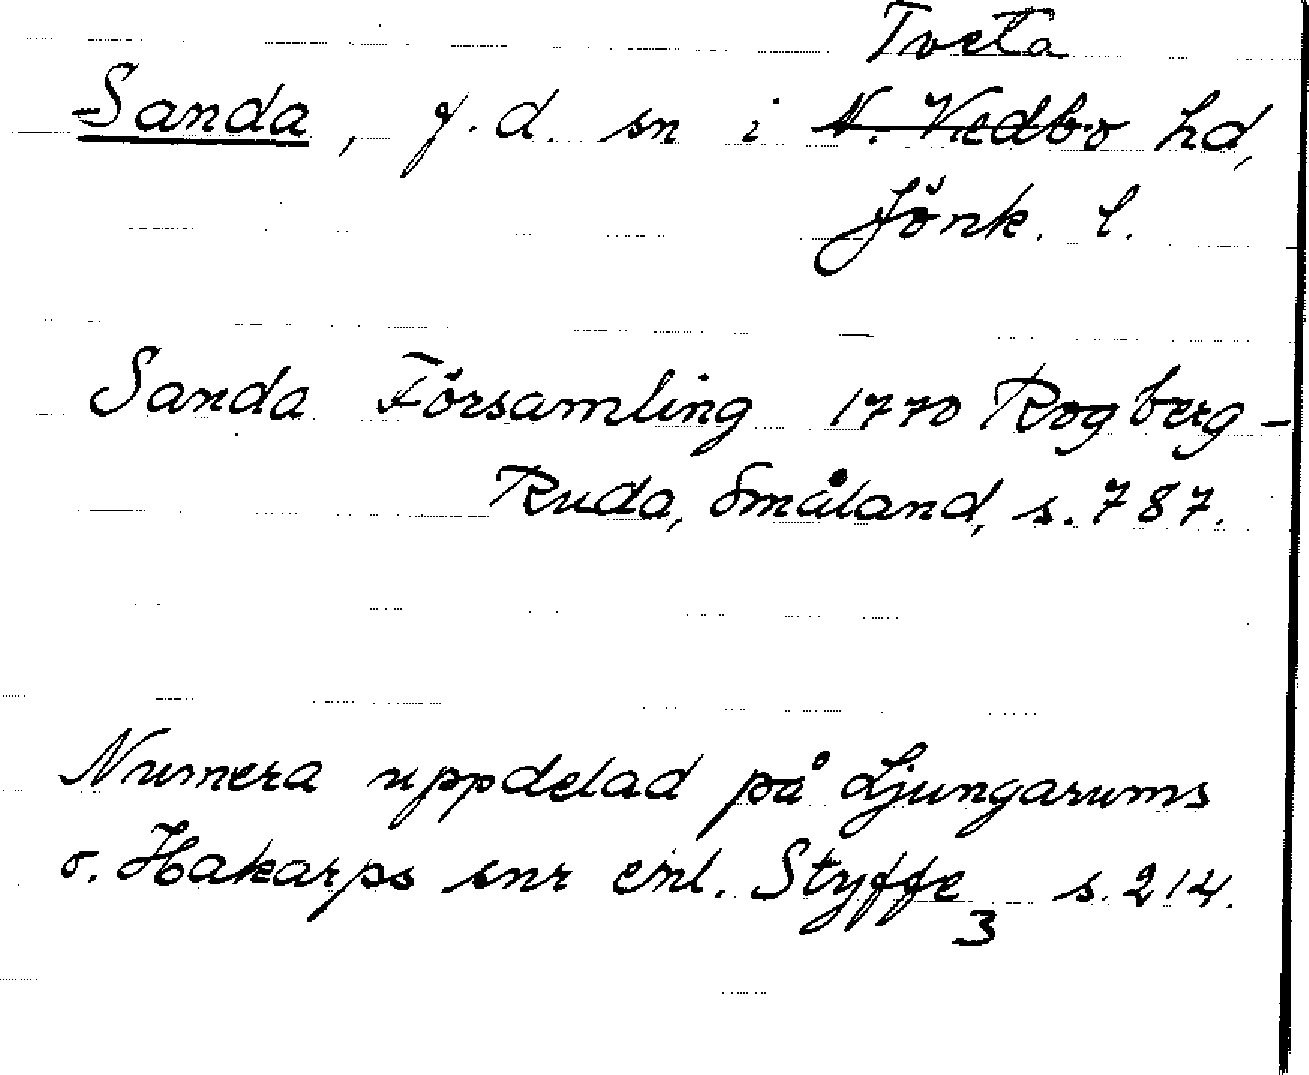 Tveta
Sanda, f.d. sn i N. Vedbo hd,
Jönk. l.
Sanda Församling 1770 Rogberg-
Ruda, Småland, s. 787.
Numera uppdelad på Ljungarums
o. Hakarps snr enl. Styffe3 s. 214.